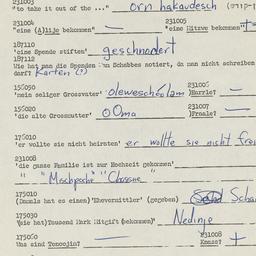 231003
"to take it out of the ..." orn hakaudesch
231004 231005
"eine (A)lije bekommen" — "eine Mitzve bekommen" +
187110
'eine Spende stiften' geschnodert
187112
Wie hat man die Spenden am Schabbes notiert, da man nicht schreiben
darf? Karten (?)
156050 231006
'mein seliger Grossvater' oleweschòlem Harrle? —
156020 231007
'die alte Grossmutter' Oma Fraale? —
175010
'er wollte sie nicht heiraten' er wollte sie nicht frei
231008
'die ganze Familie ist zur Hochzeit gekommen'
" " Mischpoche" "Chassne
175010
(Damals hat es einen) 'Ehevermittler' (gegeben) Scha
175030
'(wie hat) Tausend Mark Mitgift (bekommen)' Nedinje
175060 231008
Was sind Tenoojin? — Knass? +